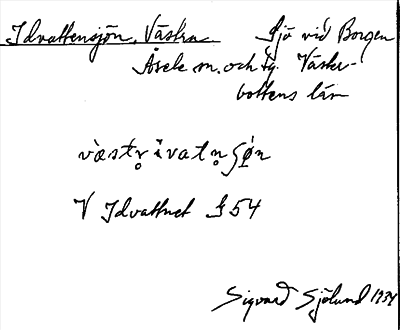 Idvattensjön, Västra Sjö vid Borgen
Åsele sn. och tg. Väster-
bottens län
vàstr̥ ìvatn̥ ʃǿn
V Idvattnet S 54
Sigvard Sjölund 1934